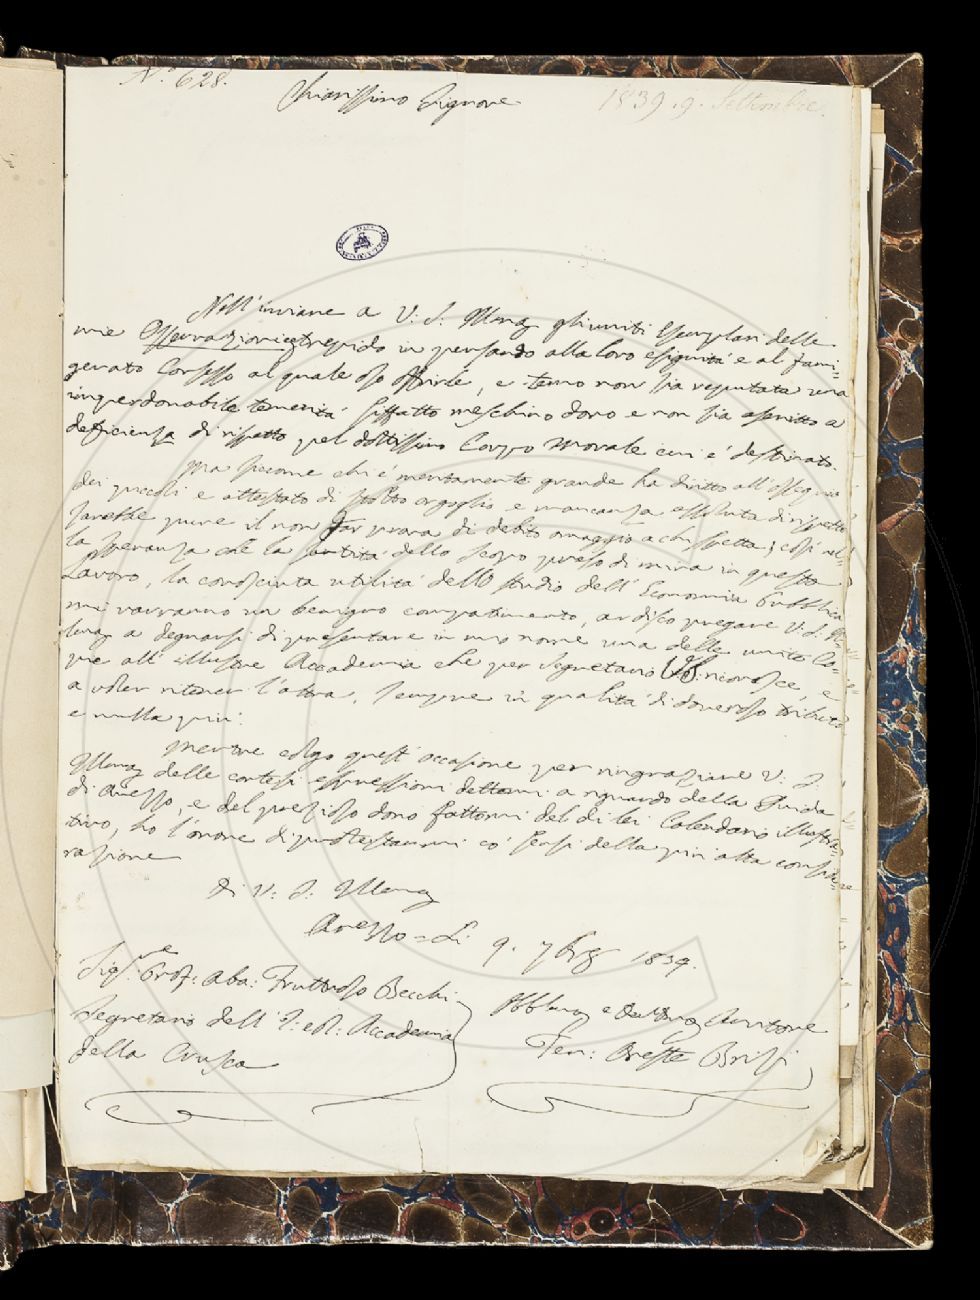 N.° 628.
Chiarissimo Signore
1839. 9. Settembre
Nell'inviare a V. S. Illma gli uniti Esemplari delle
mie Osservazioni trepido in pensando alla loro esiguità e al fami=
gerato Consesso al quale oso offrirle, e temo non sia reputata una
imperdonabile temerità siffatto meschino dono e non sia ascritto a
deficienza di rispetto pel dottissimo Corpo morale cui è destinato.
Ma siccome chi è meritamente grande ha diritto all'ossequio
dei piccoli e attestato di stolto orgoglio, e mancanza assoluta di rispetto
sarebbe pure il non far prova di debito omaggio a chi spetta; così nel=
la speranza che la santità dello scopo preso di mira in questo
Lavoro, la conosciuta utilità dello studio dell'Economia Pubblica
mi varranno un benigno compatimento, ardisco pregare V. S. Il=
lma a degnarsi di presentare in mio nome una delle unite Co=
pie all'illustre Accademia che per Segretario riconosce, e
a voler ritener l'altra, sempre in qualità di doveroso tributo
e nulla più.
Mentre colgo quest'occasione per ringraziare V. S.
Illma delle cortesi espressioni dettemi a riguardo della Guida
di Arezzo, e del prezioso dono fattomi del di lei Calendario illustra=
tivo, ho l'onore di protestarmi co' sensi della più alta conside=
razione
Di V. S. Illma
Arezzo = Li 9. 7bre 1839.
Sig.r Prof: Aba: Fruttuoso Becchi
Segretario dell'I. e R. Accademia
della Crusca
Obblmo e Devmo Servitore
Ten: Oreste Brizi